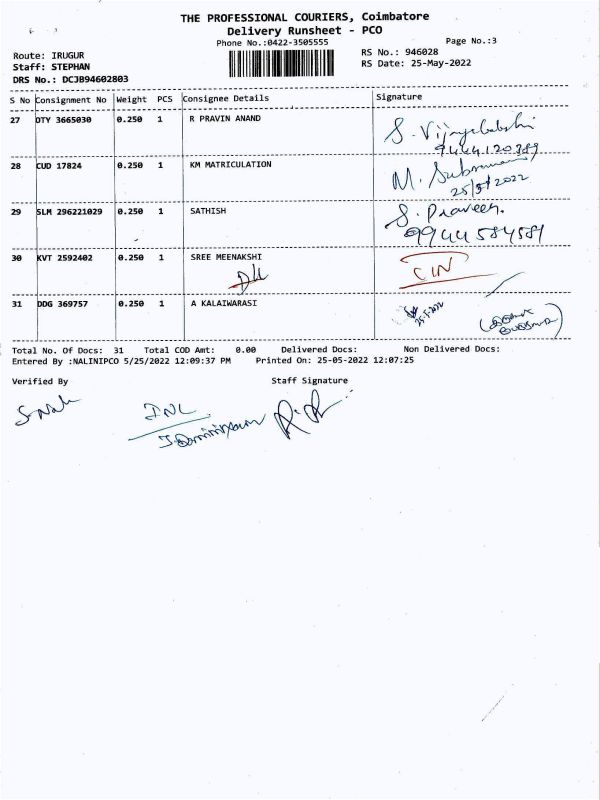 THE PROFESSIONAL COURIERS, Coimbatore
Delivery Runsheet - PCO
Phone No.:0422-3505555
Page No.:3
Route: IRUGUR
RS No.: 946028
Staff: STEPHAN
RS Date: 25-May-2022
DRS No.: DCJB94602803
S No Consignment No Weight PCS Consignee Details Signature
27 DTY 3665030 0.250 1 R PRAVIN ANAND
S. Vijayalakshi
28 CUD 17824 0.250 1 KM MATRICULATION
M. Subramani
25/5/2022
29 SLM 296221029 0.250 1 SATHISH S. Praveen.
9944584581
30 KVT 2592402 0.250 1 SREE MEENAKSHI
31 DDG 369757 0.250 1 A KALAIWARASI
25-5-2022
Total No. Of Docs: 31 Total COD Amt: 0.00 Delivered Docs: Non Delivered Docs:
Entered By :NALINIPCO 5/25/2022 12:09:37 PM Printed On: 25-05-2022 12:07:25
Verified By Staff Signature